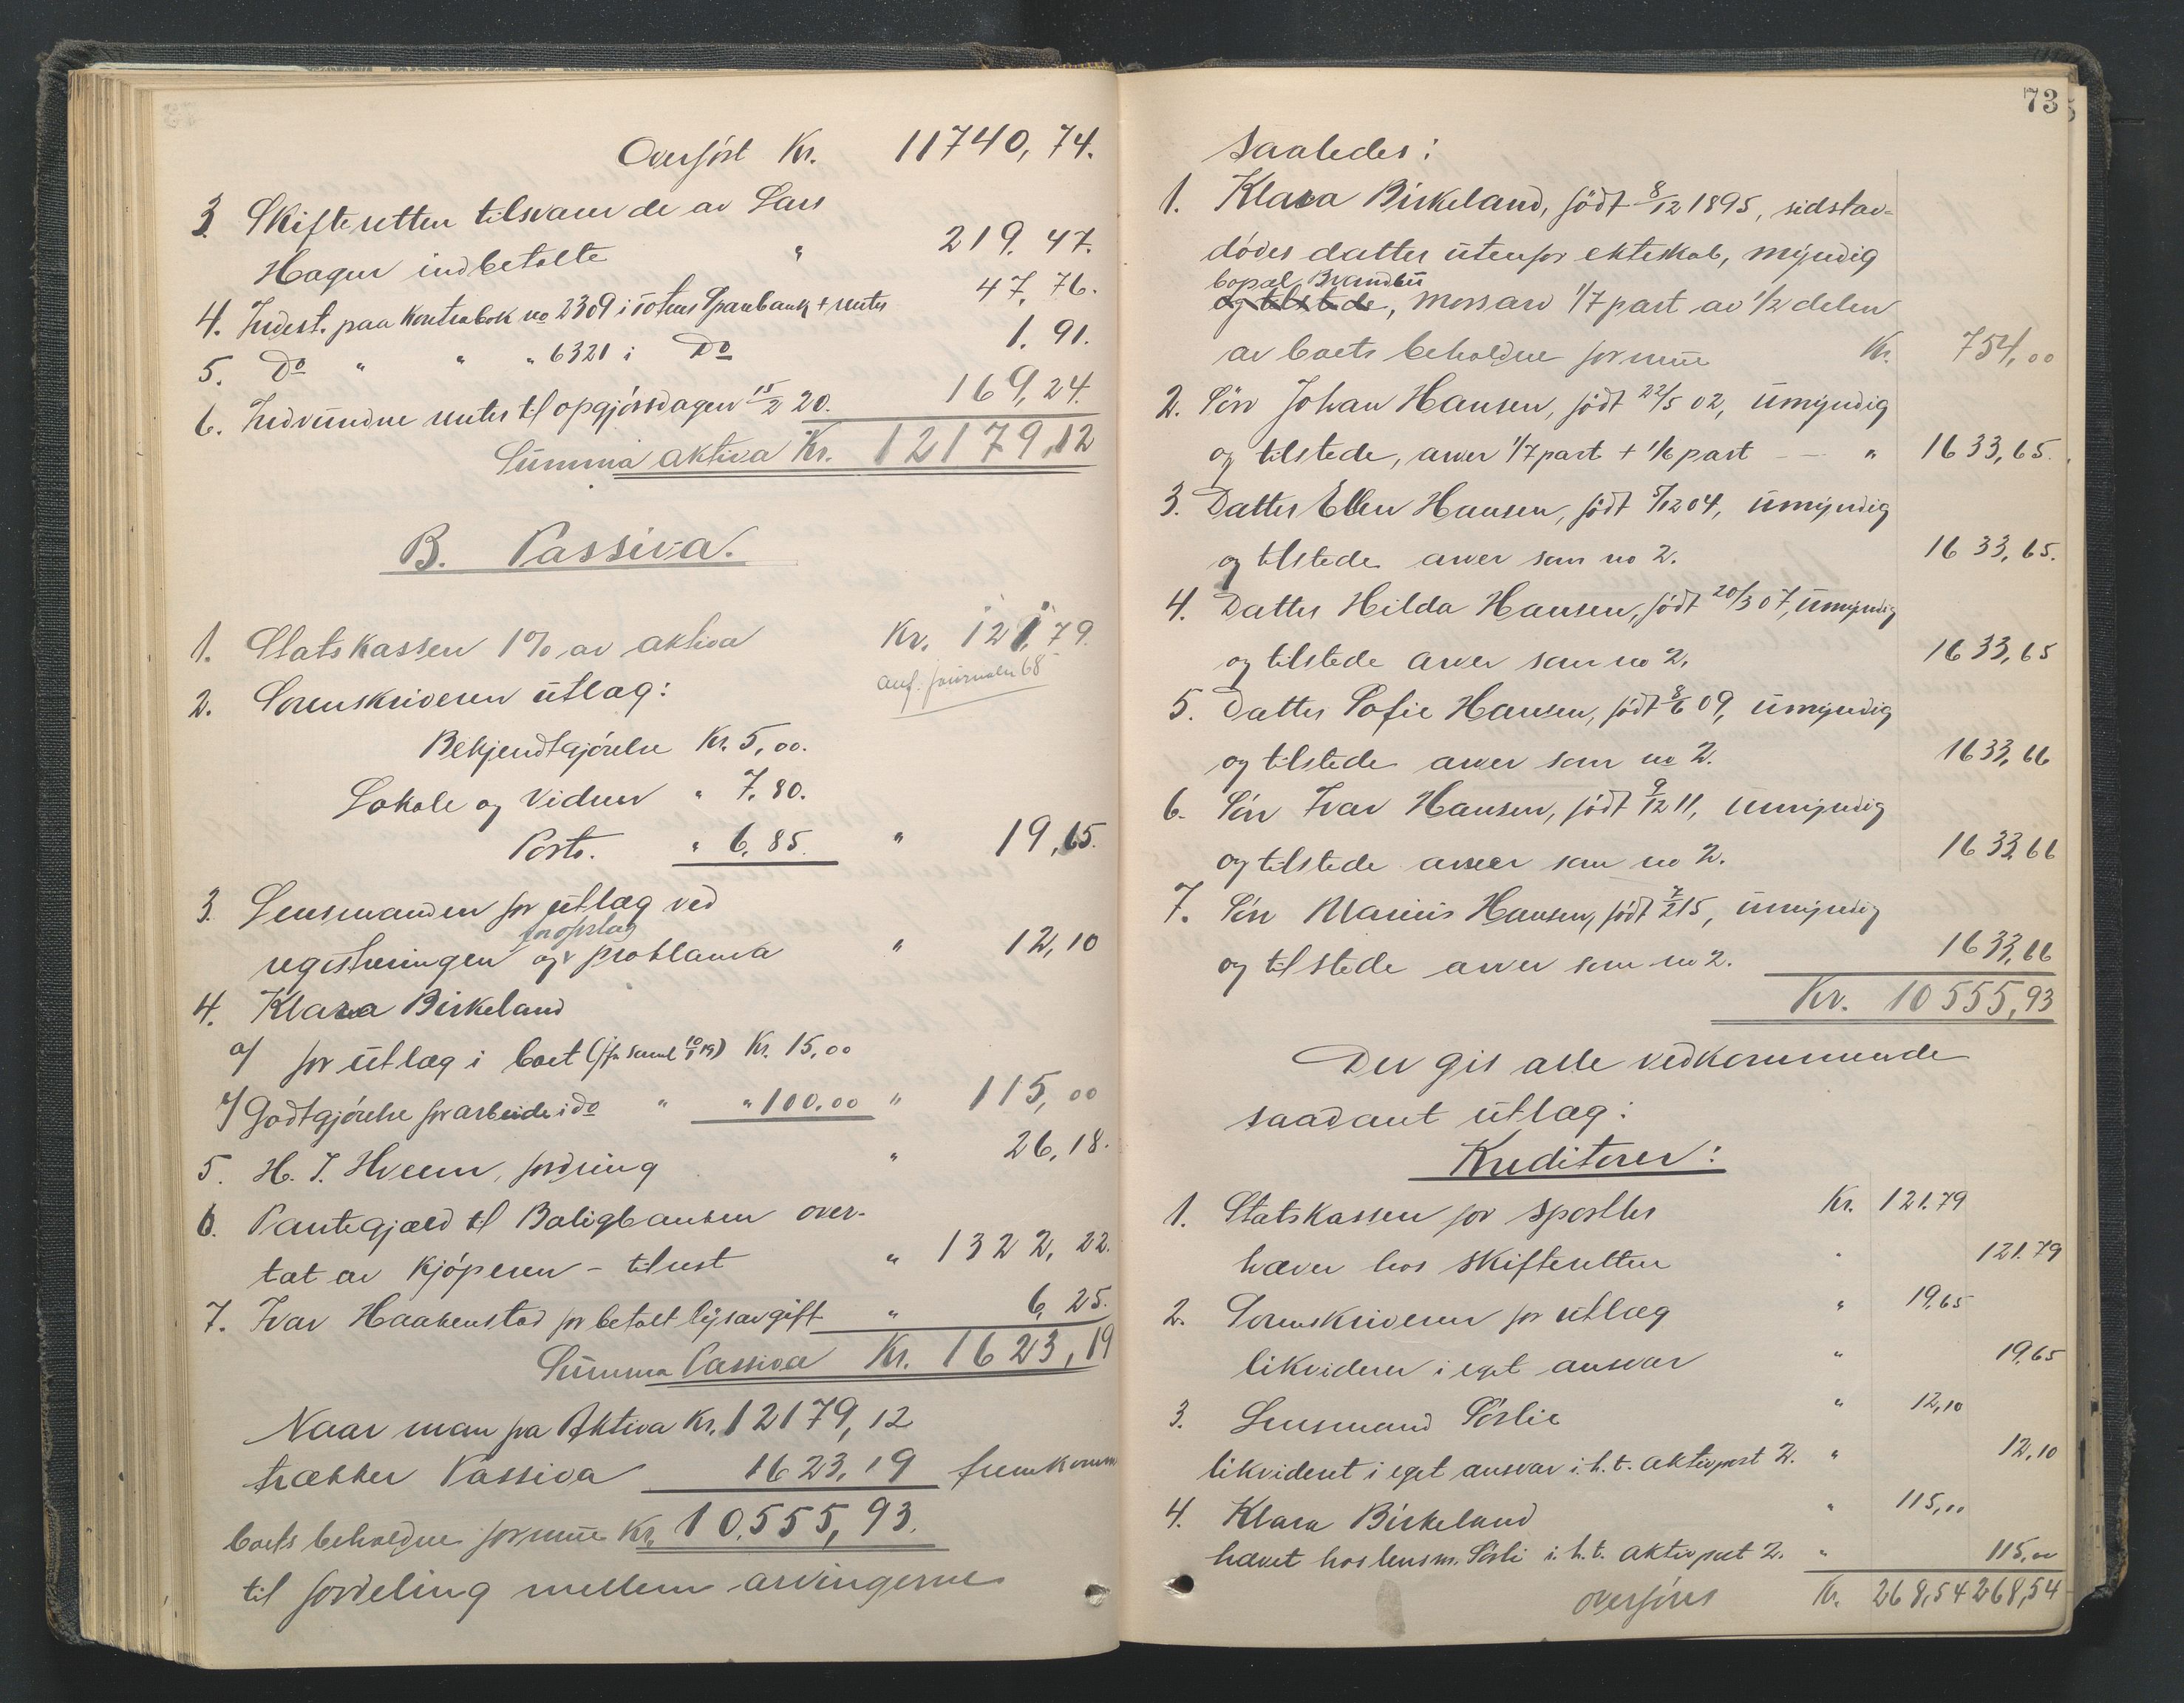 Overført Kr. 11740,74.
3. Skifteretten tilsvarende av Lars
Hagen indbetalte " 219.47.
4. Indest. paa Kontrabok no 2309 i Totens Sparebank + renter 47,76.
5. Do " " " 6321 i Do 1.91.
6. Indvundne renter til opgjörsdagen 15/2 20. 169,24.
Summa aktiva Kr. 12179,12
B. Passiva.
1. Statskassen 1% av aktiva Kr. 121,79.
anf. journalen 68
2. Sorenskriveren utlæg:
Bekjendtgjörelse Kr. 5,00.
Lokale og Vidner " 7.80.
Porto. " 6,85. " 19,65.
3. Lensmanden for utlæg ved
for opslag
registreringen og proklama " 12,10
4. Klara Birkeland
a/ for utlæg i boet (jfr saml 10/1 19) Kr. 15,00
b/ Godtgjörelse for arbeide i do " " 100.00 " 115,00
5. H. J. Hveem, fordring " 26,18.
6. Pantegjæld til Boligbanken over-
tat av kjöperen - tilrest " 1322,22.
7. Ivar Haakenstad for betalt lysavgift " 6,25.
Summa Passiva Kr. 1623,19
Naar man fra Aktiva Kr. 12179,12
trækker Passiva 1623,19 fremkommer
boets beholdne formue Kr. 10.555,93.
til fordeling mellem arvingerne
73
saaledes:
1. Klara Birkeland, født 8/12 1895, sidstav-
dødes datter utenfor ekteskab, myndig
bopæl Brandbu
og tilstede, Mossarv 1/7 part av 1/2 delen
av boets beholdne formue Kr. 754,00
2. Sön Johan Hansen, født 22/5 02, umyndig
og tilstede, arver 1/7 part + 1/6 part — " 1633,65.
3. Datter Ellen Hansen, født 5/12 04, umyndig
og tilstede arver som no 2. 1633,65.
4. Datter Hilda Hansen, født 20/3 07, umyndig
og tilstede arver som no 2. 1633,65
5. Datter Sofie Hansen, født 8/6 09, umyndig
og tilstede arver som no 2. 1633,66
6. Sön Ivar Hansen, født 9/12 11, umyndig
og tilstede arver som no 2. 1633,66
7. Sön Marius Hansen, født 7/2 15, umyndig
og tilstede arver som no 2. 1633,66
Kr. 10555,93
Der gis alle vedkommende
saadant utlæg:
Kreditorer:
1. Statskassen for sportler Kr. 121.79
hæver hos skifteretten " 121.79
2. Sorenskriveren for utlæg " 19,65
likviderer i eget ansvar " 19,65
3. Lensmand Sörlie " 12,10
likvideret i eget ansvar i.h.t. aktivpost 2. " 12,10
4. Klara Birkeland " 115,00
hævet hos lensm. Sörli i.h.t. aktivpost 2. " 115,00
overføres Kr. 268,54 268,54